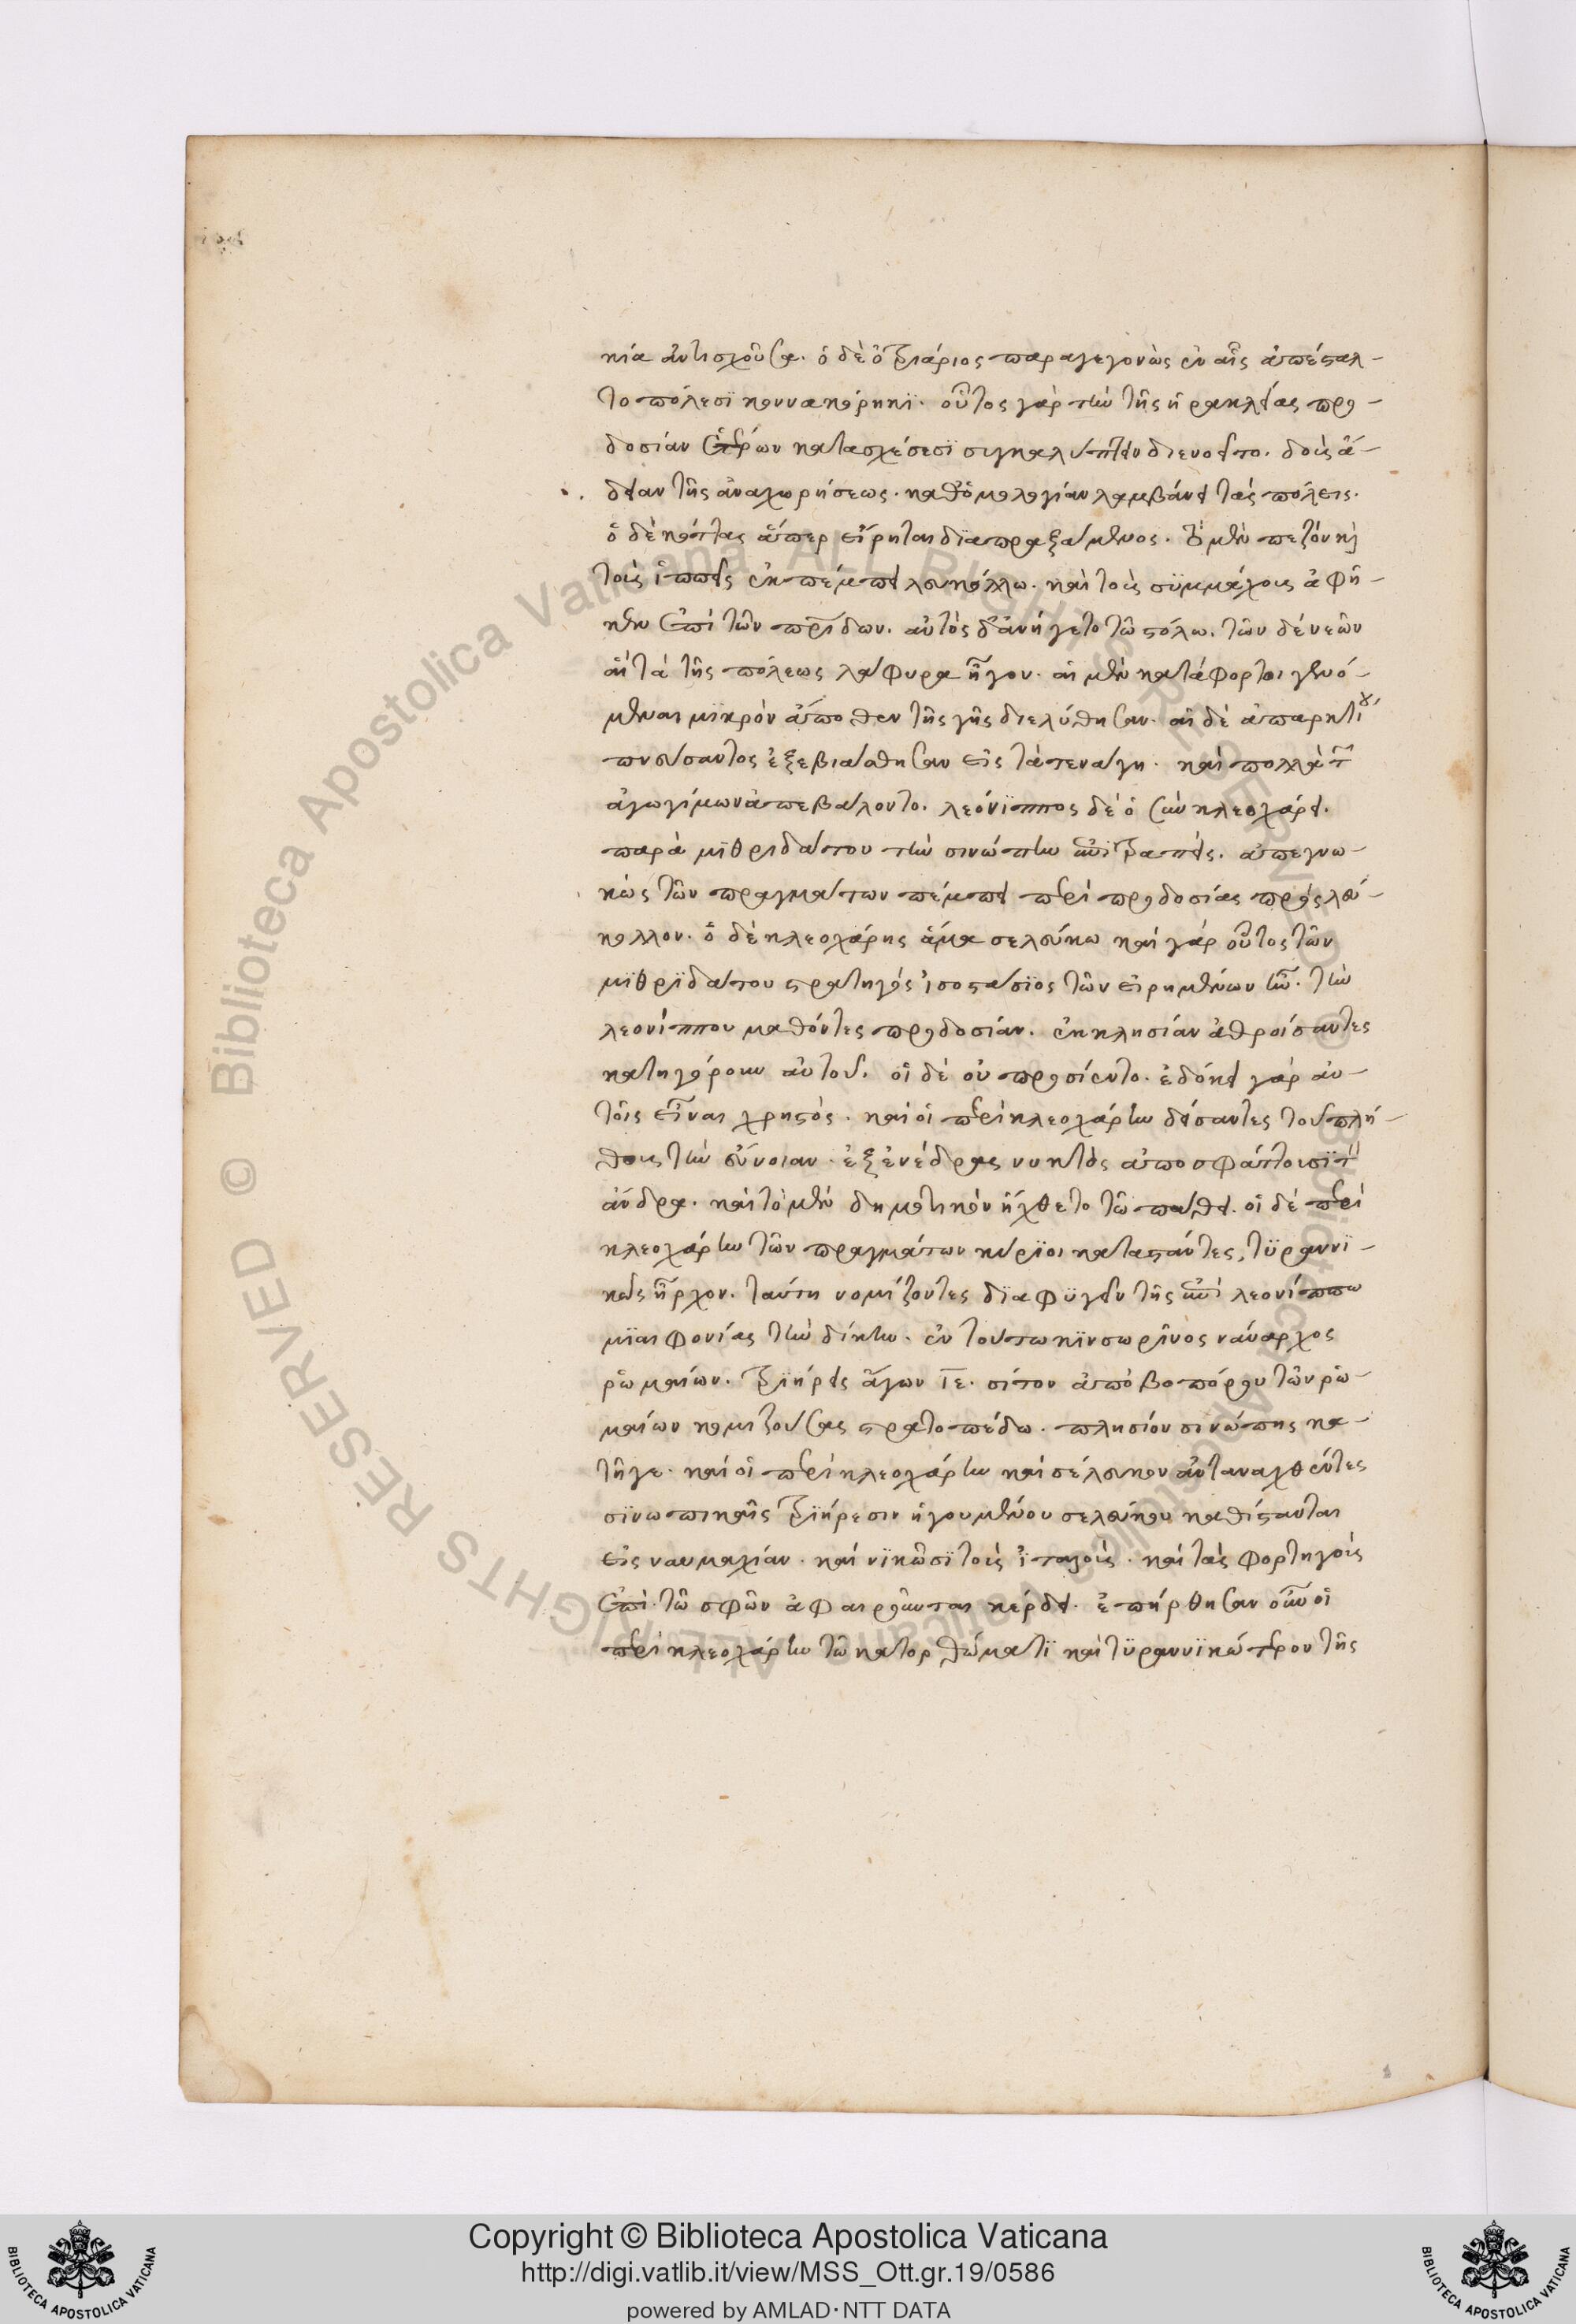 κία ἀντισχοῦσα. ὁ δὲ ὁ τριάριος παραγεγονὼς ἐν αἷς ἀπέσταλ-
το πόλεσϊ κοννακόρηκϊ. οὗτος γὰρ τὴν τῆς ἡρακλείας προ-
δοσίαν ἑτέρων κατασχέσεσϊ συγκαλύπτειν διενοεῖτο. δοὺς ἄ-
δειαν τῆς ἀναχωρήσεως. καθ' ὁμολογίαν λαμβάνει τὰς πόλεις.
ὁ δὲ κόττας ἅπερ εἴρηται δϊαπραξάμενος. τὸ μὲν πεζὸν κὶ
τοὺς ἱππεῖς ἐκπέμπει λουκόλλω. καὶ τοὺς σϋμμάχους ἀφῆ-
κεν ἐπὶ τῶν πατρίδων. αὐτὸς δ' ἀνήγετο τῶ στόλω. τῶν δὲ νεῶν
αἳ τὰ τῆς πόλεως λάφυρα ἦγον. αἱ μὲν κατάφορτοι γενό-
μεναι μϊκρὸν ἄποθεν τῆς γῆς διελύθησαν. αἱ δὲ ἀπαρκτίου
πνεύσαντος ἐξεβιάσθησαν εἰς τὰ τενάγη. καὶ πολλὰ τῶν
ἀγωγίμων ἀπεβάλοντο. λεόνϊππος δὲ ὁ σὺν κλεοχάρει.
παρὰ μϊθριδάτου τὴν σινώπην ἐπιτραπείς. ἀπεγνω-
κὼς τῶν πραγμάτων πέμπει περὶ προδοσίας πρὸς λεύ-
κολλον. ὁ δὲ κλεοχάρης ἅμα σελεύκω καὶ γὰρ οὗτος τῶν
μϊθρϊδάτου στρατηγὸς ἰσοστάσϊος τῶν εἰρημένων ἦν. τὴν
λεονίππου μαθόντες προδοσίαν. ἐκκλησίαν ἀθροίσαντες
κατηγόρουν αὐτοῦ. οἱ δὲ οὐ προσίεντο. ἐδόκει γὰρ αὐ-
τοῖς εἶναι χρηστός. καὶ οἱ περὶ κλεοχάρην δείσαντες τοῦ πλή-
θους τὴν εὔνοιαν. ἐξ ἐνέδρας νυκτὸς ἀποσφάττουσϊ τὸν
ἄνδρα. καὶ τὸ μὲν δημοτικὸν ἤχθετο τῶ πάθει. οἱ δὲ περὶ
κλεοχάρην τῶν πραγμάτων κύρϊοι καταστάντες, τϋραννϊ-
κῶς ἦρχον. ταύτη νομίζοντες δϊαφϋγεῖν τῆς ἐπὶ λεονίππω
μϊαιφονίας τὴν δίκην. ἐν τούτω κϊνσωρῖνος ναύαρχος
ῥωμαίων. τρϊήρεις ἄγων ι̅ε̅. σίτον ἀπὸ βοσπόρου τῶν ῥω-
μαίων κομιζούσας στρατοπέδω. πλησίον σινώπης κα-
τῆγε. καὶ οἱ περὶ κλεοχάρην καὶ σέλευκον ἀνταναχθέντες
σϊνωπικαῖς τρϊήρεσιν ἡγουμένου σελεύκου καθίστανται
εἰς ναυμαχίαν. καὶ νϊκῶσϊ τοὺς ἰταλούς. καὶ τὰς φορτηγοὺς
ἐπὶ τῶ σφῶν ἀφαιροῦνται κέρδει. ἐπήρθησαν οὖν οἱ
περὶ κλεοχάρην τῶ κατορθώματϊ καὶ τϋραννϊκώτερον τῆς
Copyright © Biblioteca Apostolica Vaticana
http://digi.vatlib.it/view/MSS_Ott.gr.19/0586
powered by AMLAD·NTT DATA